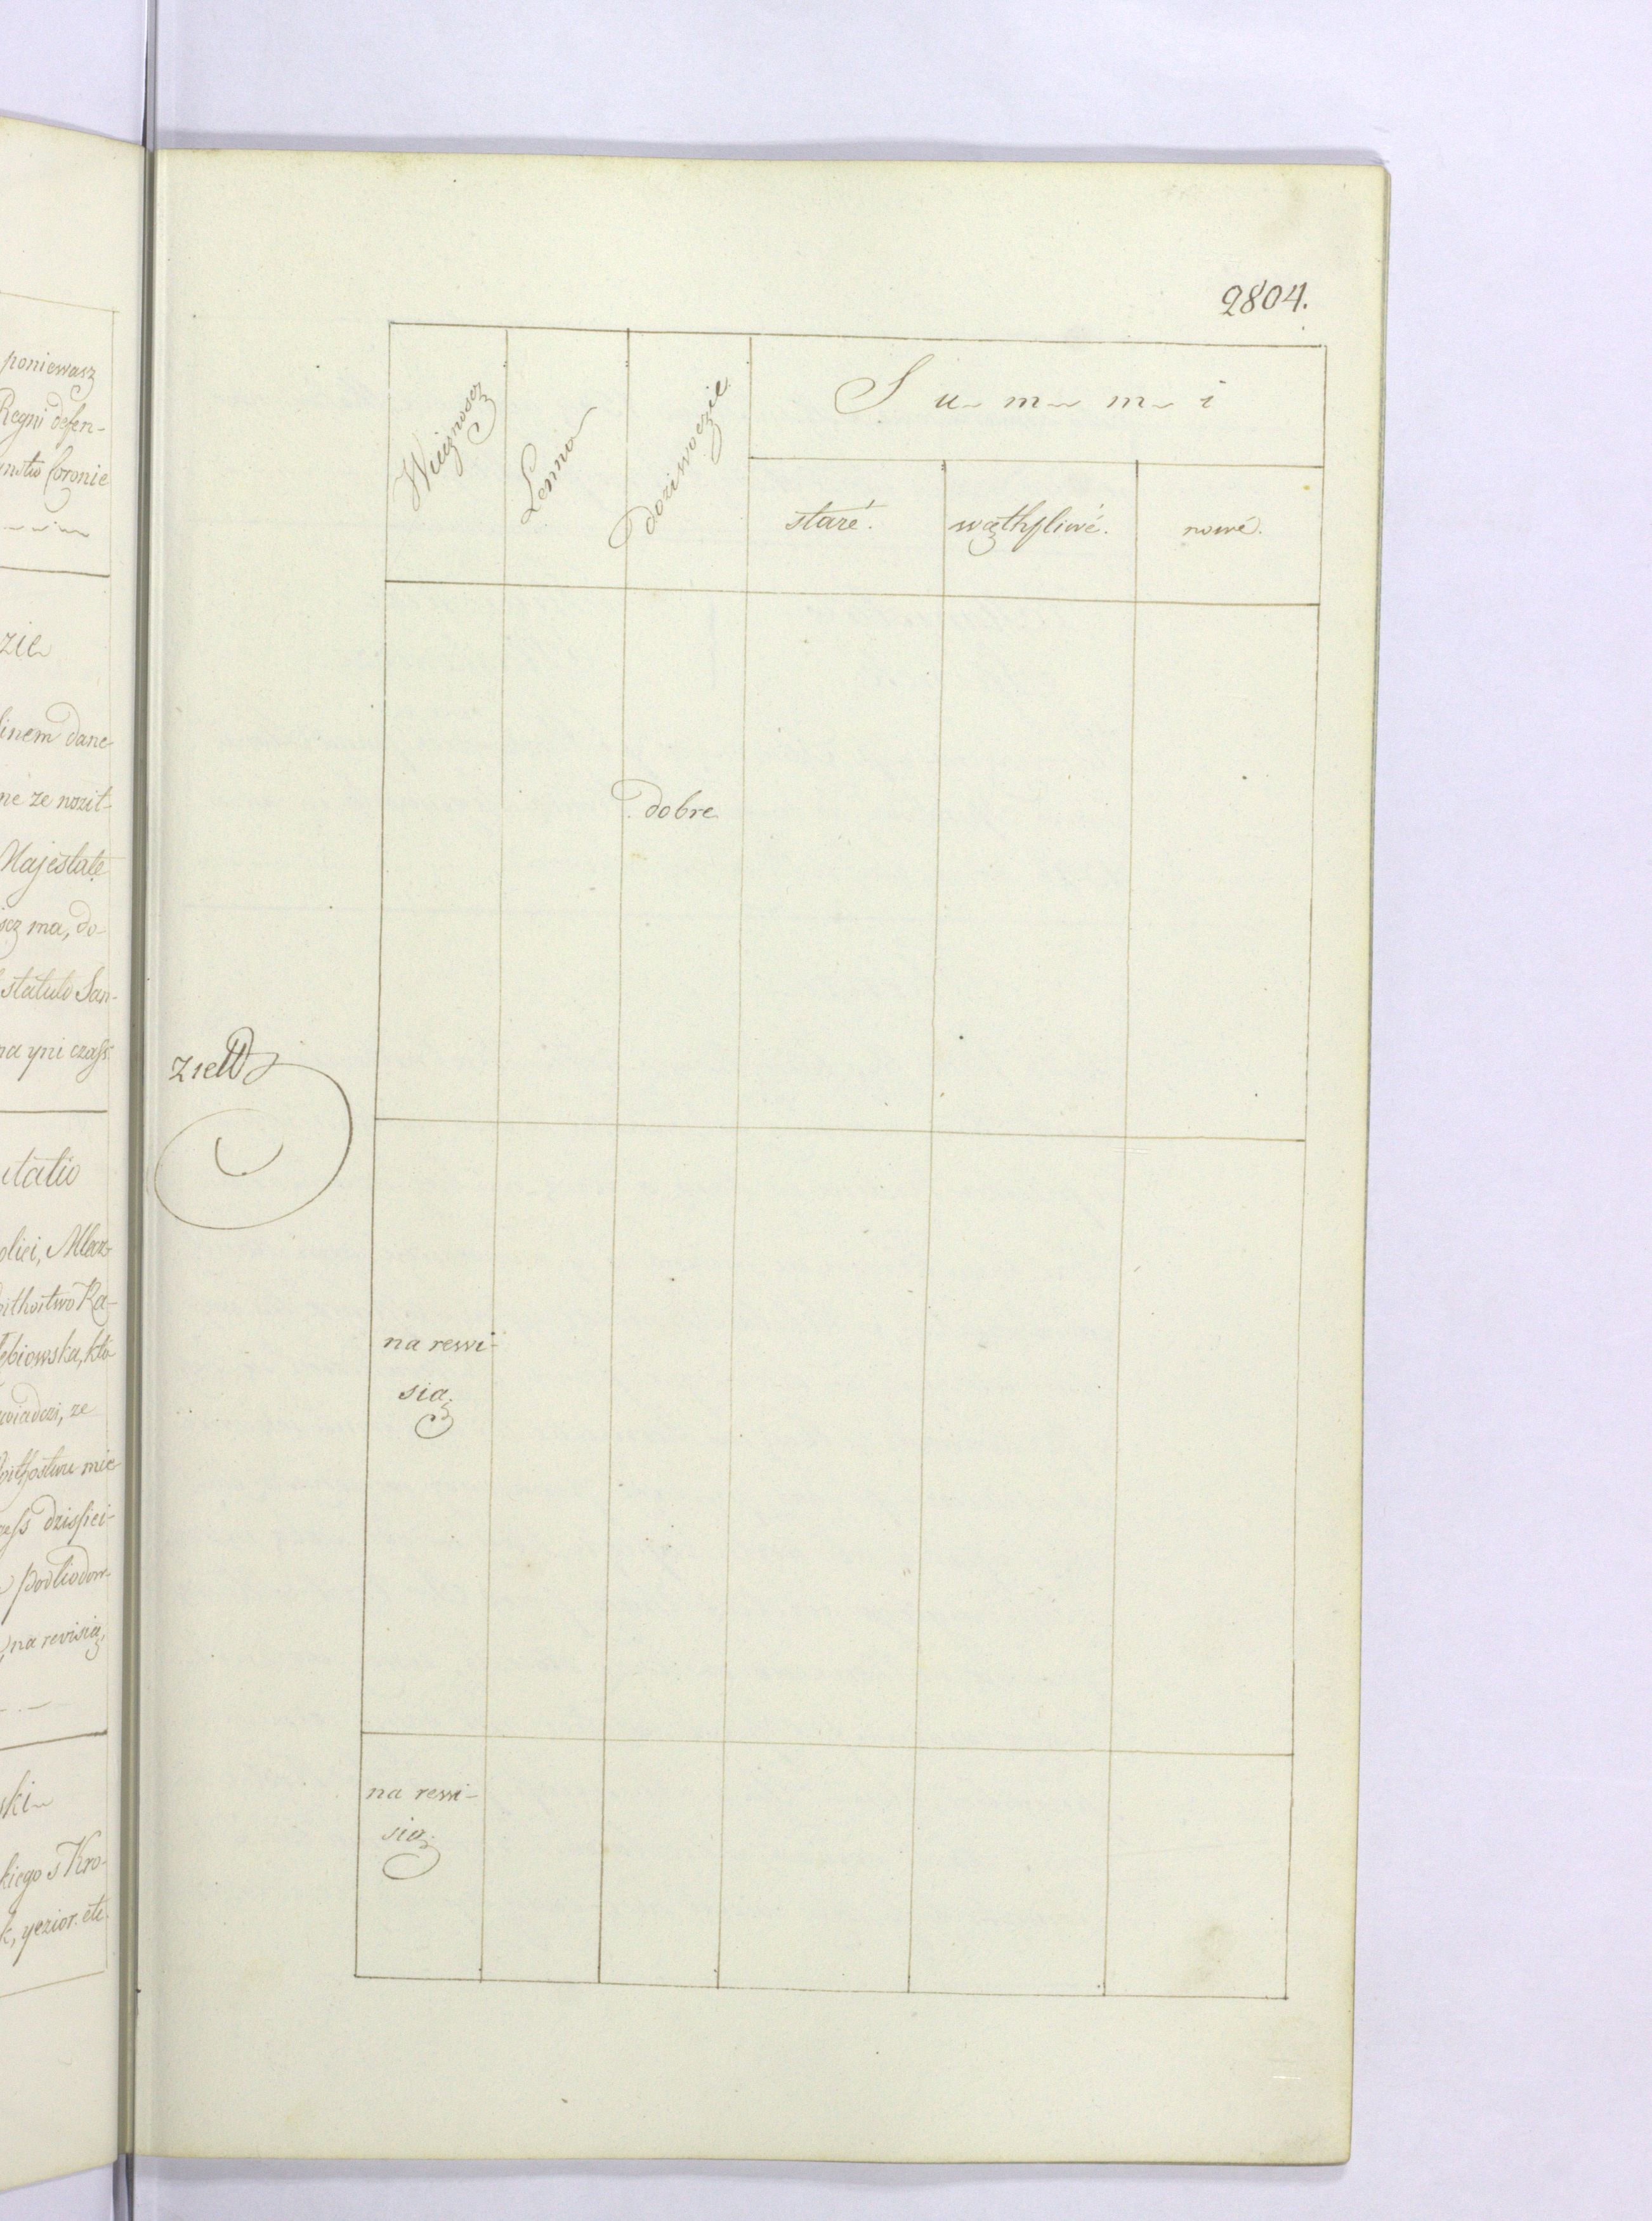 poniewasz
Regni defen-
nstwo Coronie
zie
linem dane
ne ze nozit-
Majestate
scz ma, do-
statuto San-
na yni czass
utatio
olici, Mlecz-
oithostwo Ka-
ębiowska, kto
wiadczi, ze
oithostwu mie
zess dzissiei-
podliodow-
na revisią,
ski
kiego s Kro-
k, yezior. etc.
2804.
Wiecznoscz
Lenno
doziwoczie
Summi
staré.
wąthpliwé.
nowé.
dobre
na rewi-
sią.
na rewi-
sią.